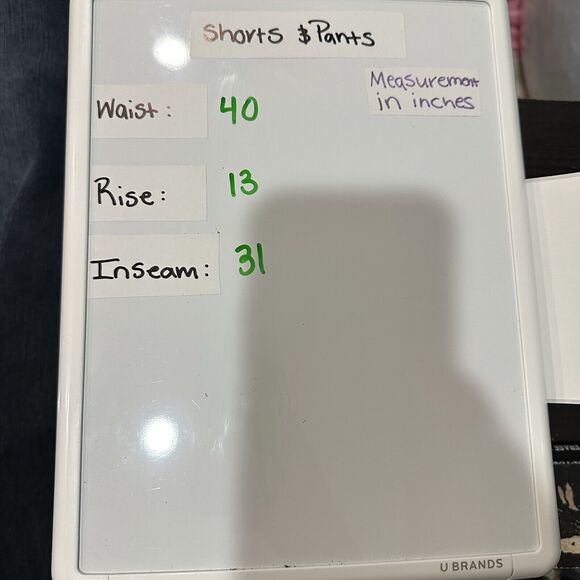 Shorts & Pants
Measurement
in inches
Waist: 40
Rise: 13
Inseam: 31
U BRANDS